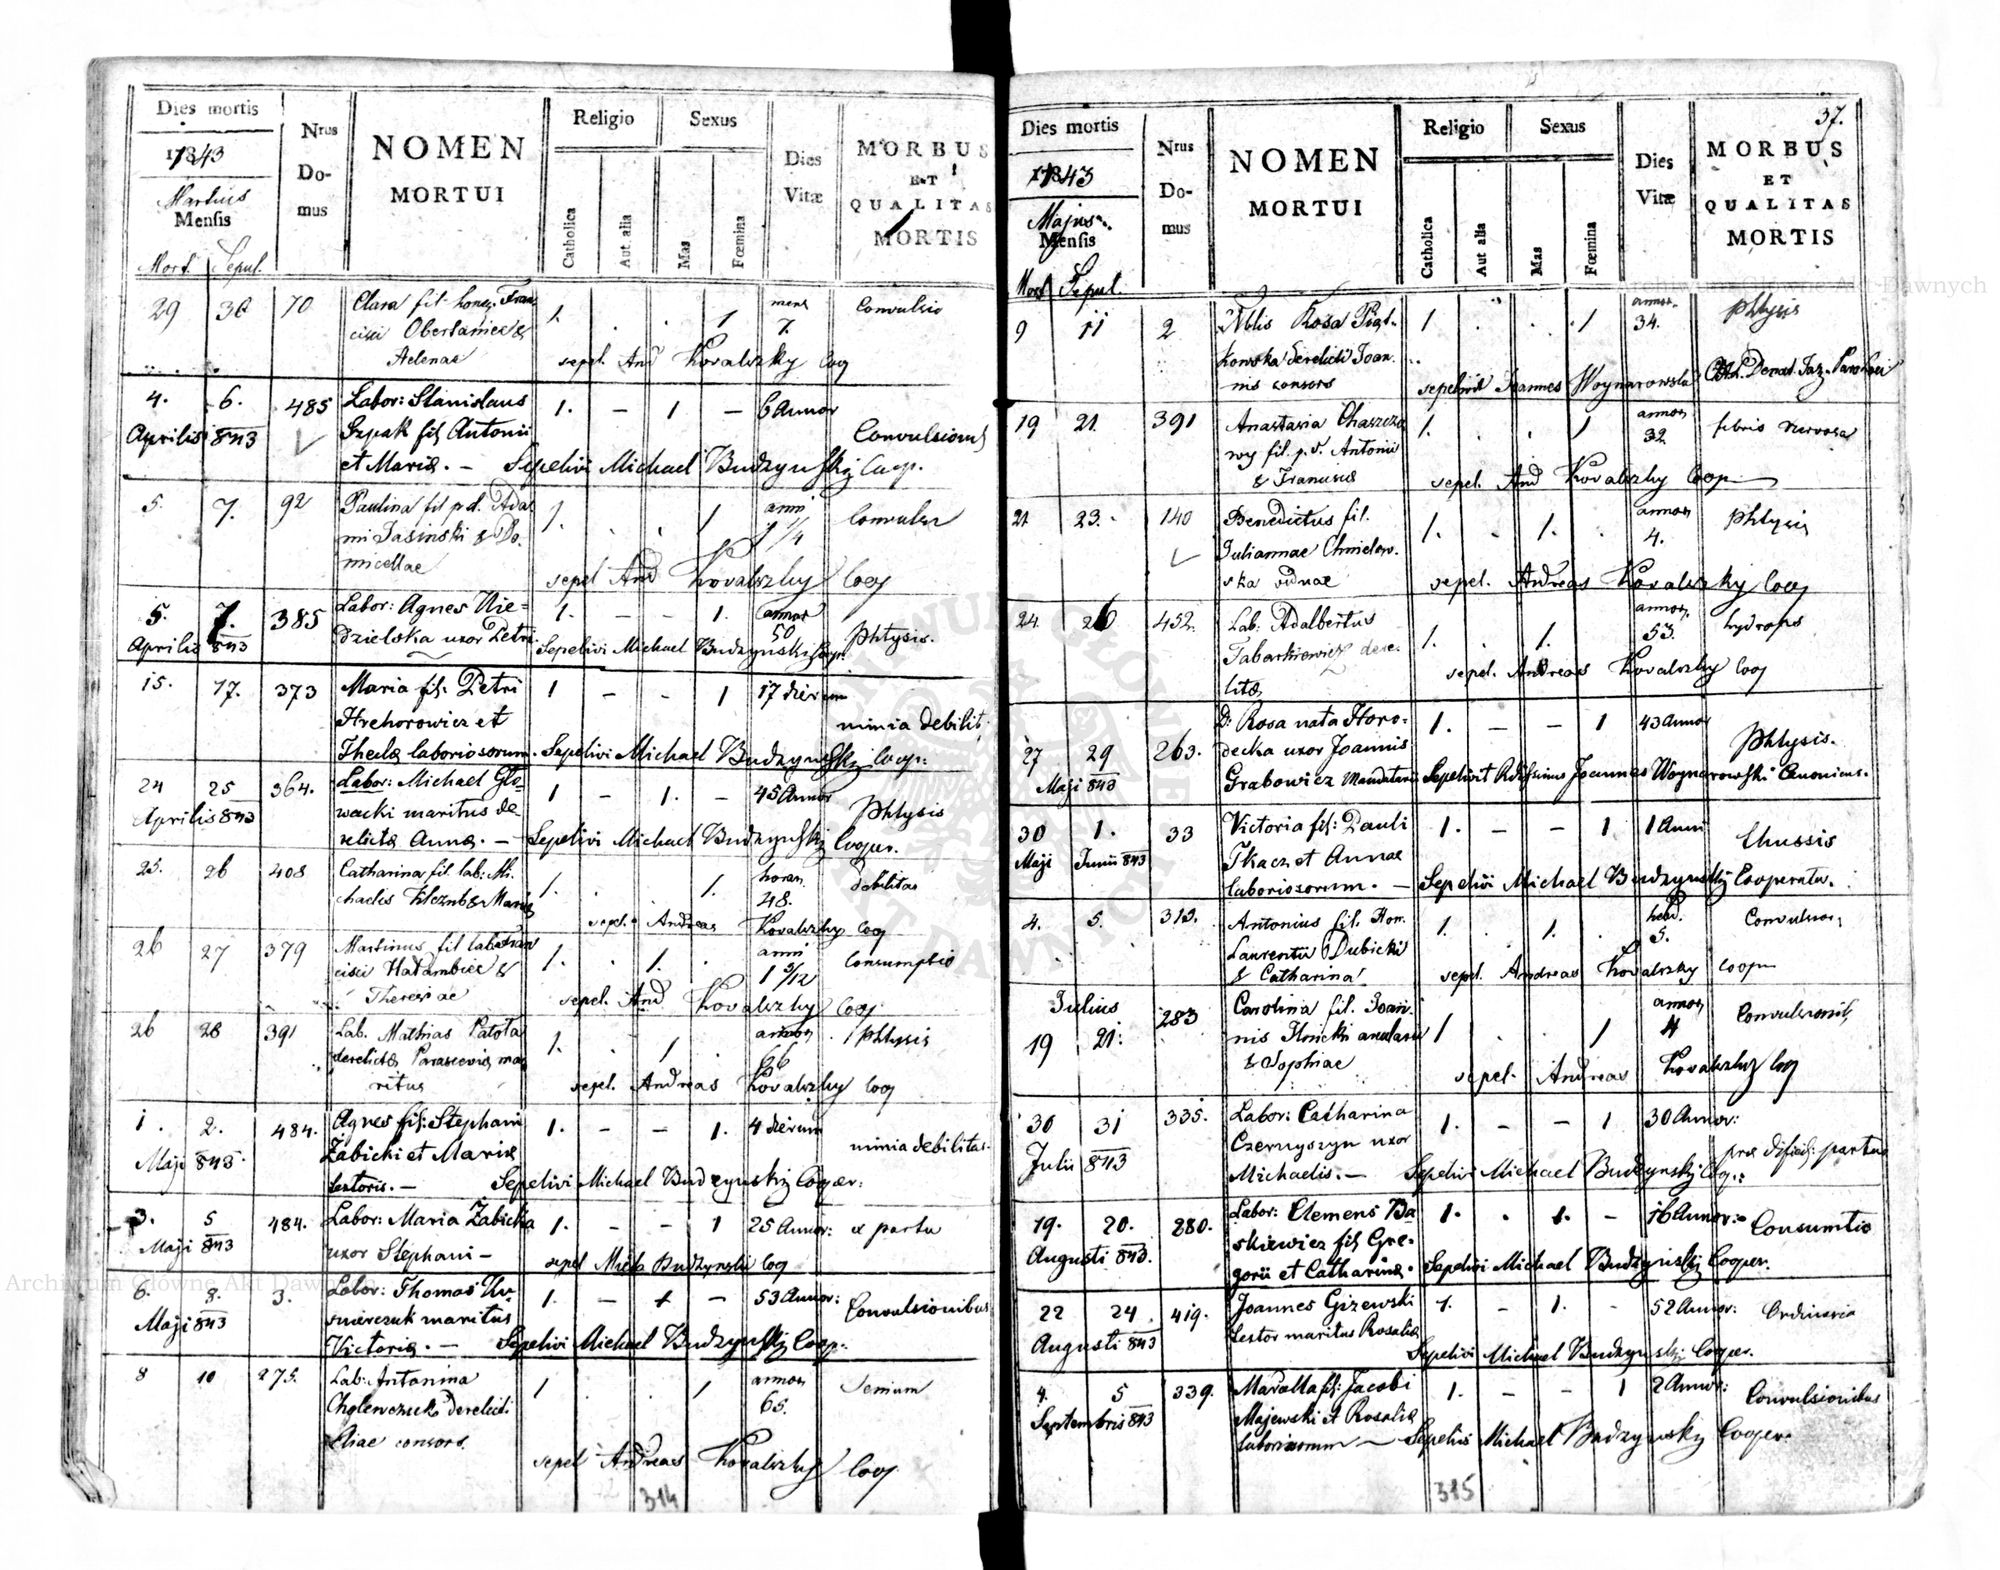 Dies mortis
1843
Martius
Mensis
Mort. Sepul.
Nrus
Do-
mus
NOMEN
MORTUI
Religio
Catholica
Aut alia
Sexus
Mas
Fœmina
Dies
Vitæ
MORBUS
ET
QUALITAS
MORTIS
29 30 70 Clara fil. 1. 1 mens Convulsio
7.
Helenae sepel. And Kovalszky Coop
4. 6. 485 Labor: Stanislaus 1. – 1 – 6 Annor
Aprilis 843 Szpak fil: Antonii Convulsionis
et Mariæ. – Sepelivi Michael Budzynski Coop.
5. 7. 92 Paulina fil p.d. Ada 1. 1 anni Convulsio
mi Jasinski & Do 1 1/4
micellae sepel And Kovalszky Coop
5. 7. 385 Labor: Agnes Nie= 1. – – 1. annor
Aprilis 843 dzielska uxor Petri. 50 Phtysis.
Sepelivi Michael Budzynski Coop:
15. 17. 373 Maria fil: Petri 1 – – 1 17 dierum
Hrehorowicz et nimia debilit.
Theclæ laboriosorum. Sepelivi Michael Budzynski Coop:
24 25 364. Labor: Michael Gło= 1 – 1. – 45 Annor
Aprilis 843 wacki maritus de= Phtysis
relictæ Annæ. – Sepelivi Michael Budzynski Cooper.
25. 26 408 Catharina fil. lab: Mi 1. 1. horar. Debilitas
chaelis & Mariæ 48.
sepel. Andreas Kovalszky Coop
26 27 379 Martinus fil lab 1. 1. anni Consumptio
& 1 9/12
Theresiae sepel. And Kovalszky Coop
26 28 391 Lab. Mathias Patota 1. 1 annor Phtysis
derelictæ Parasceviæ ma 66
ritus sepel. Andreas Kovalszky Coop
1. 2. 484. Agnes fil: Stephani 1. – – 1. 4 dierum
Maji 843. Zabicki et Mariæ nimia debilitas.
textoris. – Sepelivi Michael Budzynski Cooper:
3. 5 484. Labor: Maria Zabicka 1. – – 1 25 Annor: ex partu
Maji 843 uxor Stephani –
sepel Micha Budzynski Coop
6. 8. 3. Labor: Thomas 1. – 1 – 53 Annor: Convulsionibus
Maji 843 maritus
Victoriæ. – Sepelivi Michael Budzynski Coop:
8 10 275. Lab: Antonina 1 1 annor Senium
derelicti 65.
Eliae consors.
sepel Andreas Kovalszky Coop
314
37.
Dies mortis
1843
Majus
Mensis
Mort Sepul.
Nrus
Do-
mus
NOMEN
MORTUI
Religio
Catholica
Aut alia
Sexus
Mas
Fœmina
Dies
Vitæ
MORBUS
ET
QUALITAS
MORTIS
9 11 2 Nblis Rosa 1 1 annor Phtysis
kowska derelicti Joan 34.
nis consors sepelivit Joannes Woynarowski
19 21. 391 Anastasia 1. 1 annor febris nervosa
wy fil. p.d. Antonii 32
& Franciscæ sepel. And Kovalszky Coop
21 23. 140 Benedictus fil. 1. 1. annor Phtysis
Juliannae Chmielow. 4.
ska viduae sepel. Andreas Kovalszky Coop
24 26 452. Lab: Adalbertus 1. 1. annor hydrops
Tabarkiewicz dere. 53.
lictæ sepel. Andreas Kovalszky Coop
D: Rosa nata Horo= 1. – – 1 43 Annor
27 29 263. decka uxor Joannis Phtysis.
Maji 843 Grabowicz Mandatarii Sepelivit Rdissimus Joannes Woynarowski Canonicus.
30 1. 33 Victoria fil: Pauli 1. – – 1 1 Anni
Maji Junii 843 Tkacz et Annae Thussis
laboriosorum. – Sepelivi Michael Budzynski Cooperator.
4. 5. 313. Antonius fil. Hon. 1. 1. hebd. Convulsion,
Laurentii Dubicki 5.
& Catharina sepel. Andreas Kovalszky Coop
Julius 283 Carolina fil. Joan. annor Convulsionib,
19 21. nis 1 1 4
& Sophiae sepel. Andreas Kovalszky Coop
30 31 335. Labor: Catharina 1. – – 1 30 Annor:
Julii 843 Czernyszyn uxor præ dificili partu
Michaelis. – Sepelivi Michael Budzynski Coop.:
19. 20. 280. Labor: Clemens Ba 1. . 1. – 16 Annor: Consumtio
Augusti 843. skiewicz fil: Gre=
gorii et Catharinæ. Sepelivi Michael Budzynski Cooper.
22 24 419. Joannes Gizewski 1. – 1. – 52 Annor: Ordinaria
Augusti 843 textor maritus Rosaliæ
Sepelivi Michael Budzynski Cooper.
4. 5 339. fil: Jacobi 1. – – 1 2 Annor: Convulsionibus
Septembris 843 Majewski et Rosaliæ
laboriosorum – Sepelivi Michael Budzynsky Cooper.
315
Archiwum Główne Akt Dawnych
Archiwum Główne Akt Dawnych
ARCHIWUM GŁÓWNE AKT DAWNYCH